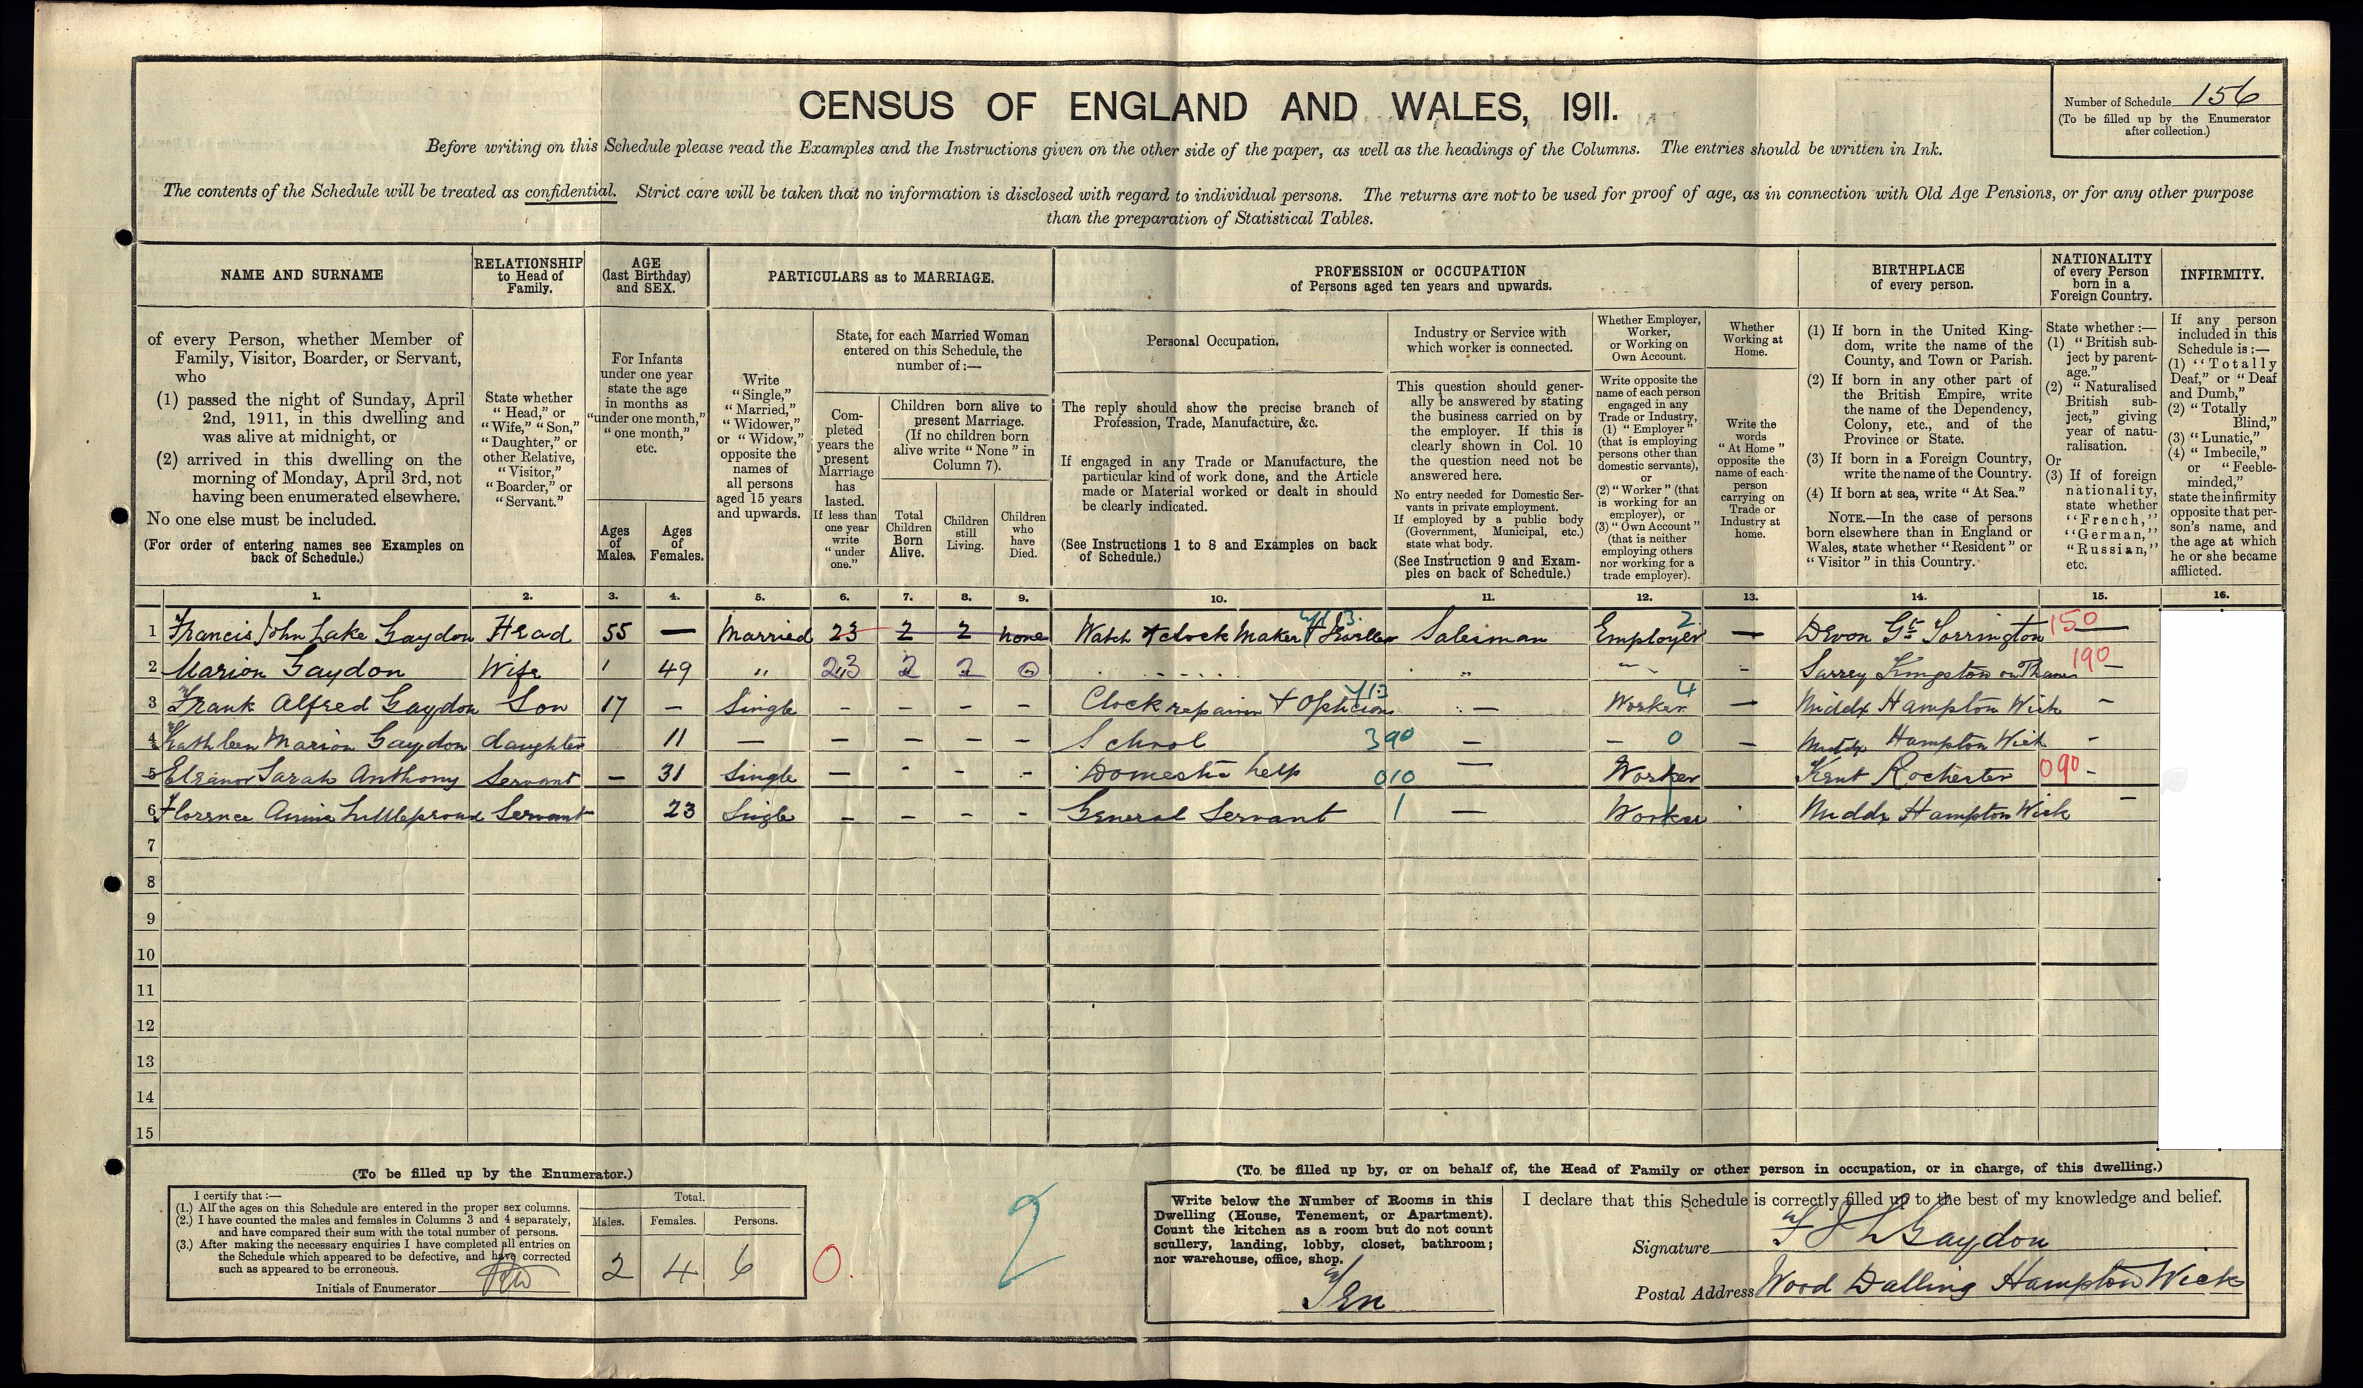 CENSUS OF ENGLAND AND WALES, 1911.
Number of Schedule 156
(To be filled up by the Enumerator
after collection.)
Before writing on this Schedule please read the Examples and the Instructions given on the other side of the paper, as well as the headings of the Columns. The entries should be written in Ink.
The contents of the Schedule will be treated as confidential. Strict care will be taken that no information is disclosed with regard to individual persons. The returns are not to be used for proof of age, as in connection with Old Age Pensions, or for any other purpose
than the preparation of Statistical Tables.
NAME AND SURNAME
RELATIONSHIP
to Head of
Family.
AGE
(last Birthday)
and SEX.
PARTICULARS as to MARRIAGE.
PROFESSION or OCCUPATION
of Persons aged ten years and upwards.
BIRTHPLACE
of every person.
NATIONALITY
of every Person
born in a
Foreign Country.
INFIRMITY.
of every Person, whether Member of
Family, Visitor, Boarder, or Servant,
who
(1) passed the night of Sunday, April
2nd, 1911, in this dwelling and
was alive at midnight, or
(2) arrived in this dwelling on the
morning of Monday, April 3rd, not
having been enumerated elsewhere.
No one else must be included.
(For order of entering names see Examples on
back of Schedule.)
State whether
"Head," or
"Wife," "Son,"
"Daughter," or
other Relative,
"Visitor,"
"Boarder," or
"Servant."
For Infants
under one year
state the age
in months as
"under one month,"
"one month,"
etc.
Ages
of
Males.
Ages
of
Females.
Write
"Single,"
"Married,"
"Widower,"
or "Widow,"
opposite the
names of
all persons
aged 15 years
and upwards.
State, for each Married Woman
entered on this Schedule, the
number of:—
Com-
pleted
years the
present
Marriage
has
lasted.
If less than
one year
write
"under
one."
Children born alive to
present Marriage.
(If no children born
alive write "None" in
Column 7).
Total
Children
Born
Alive.
Children
still
Living.
Children
who
have
Died.
Personal Occupation.
The reply should show the precise branch of
Profession, Trade, Manufacture, &c.
If engaged in any Trade or Manufacture, the
particular kind of work done, and the Article
made or Material worked or dealt in should
be clearly indicated.
(See Instructions 1 to 8 and Examples on back
of Schedule.)
Industry or Service with
which worker is connected.
This question should gener-
ally be answered by stating
the business carried on by
the employer. If this is
clearly shown in Col. 10
the question need not be
answered here.
No entry needed for Domestic Ser-
vants in private employment.
If employed by a public body
(Government, Municipal, etc.)
state what body.
(See Instruction 9 and Exam-
ples on back of Schedule.)
Whether Employer,
Worker,
or Working on
Own Account.
Write opposite the
name of each person
engaged in any
Trade or Industry,
(1) "Employer"
(that is employing
persons other than
domestic servants),
or
(2) "Worker" (that
is working for an
employer), or
(3) "Own Account"
(that is neither
employing others
nor working for a
trade employer).
Whether
Working at
Home.
Write the
words
"At Home"
opposite the
name of each
person
carrying on
Trade or
Industry at
home.
(1) If born in the United King-
dom, write the name of the
County, and Town or Parish.
(2) If born in any other part of
the British Empire, write
the name of the Dependency,
Colony, etc., and of the
Province or State.
(3) If born in a Foreign Country,
write the name of the Country.
(4) If born at sea, write "At Sea."
NOTE.—In the case of persons
born elsewhere than in England or
Wales, state whether "Resident" or
"Visitor" in this Country.
State whether:—
(1) "British sub-
ject by parent-
age."
(2) "Naturalised
British sub-
ject," giving
year of natu-
ralisation.
Or
(3) If of foreign
nationality,
state whether
"French,"
"German,"
"Russian,"
etc.
If any person
included in this
Schedule is:—
(1) "Totally
Deaf," or "Deaf
and Dumb,"
(2) "Totally
Blind,"
(3) "Lunatic,"
(4) "Imbecile,"
or "Feeble-
minded,"
state the infirmity
opposite that per-
son's name, and
the age at which
he or she became
afflicted.
1. 2. 3. 4. 5. 6. 7. 8. 9. 10. 11. 12. 13. 14. 15. 16.
1 Francis John Lake Gaydon Head 55 — Married 23 2 2 none Watch & clock Maker & Jeweller 713 Salesman Employer 2 — Devon Gt Torrington 150 —
2 Marion Gaydon Wife 49 " 23 2 2 0 - Surrey Kingston on Thames 190 —
3 Frank Alfred Gaydon Son 17 — Single — — — — Clock repairer & Optician 713 — Worker 4 — Middx Hampton Wick —
4 Kathleen Marion Gaydon daughter 11 — — — — — School 390 — — 0 — Middx Hampton Wick —
5 Eleanor Sarah Anthony Servant — 31 Single — - - - Domestic help 010 — Worker Kent Rochester 090 -
6 Florence Annie Littleproud Servant 23 Single — — — — General Servant 1 — Worker Middx Hampton Wick —
7
8
9
10
11
12
13
14
15
(To be filled up by the Enumerator.)
I certify that:—
(1.) All the ages on this Schedule are entered in the proper sex columns.
(2.) I have counted the males and females in Columns 3 and 4 separately,
and have compared their sum with the total number of persons.
(3.) After making the necessary enquiries I have completed all entries on
the Schedule which appeared to be defective, and have corrected
such as appeared to be erroneous.
Initials of Enumerator
Total.
Males. Females. Persons.
2 4 6
0.
2
(To be filled up by, or on behalf of, the Head of Family or other person in occupation, or in charge, of this dwelling.)
Write below the Number of Rooms in this
Dwelling (House, Tenement, or Apartment).
Count the kitchen as a room but do not count
scullery, landing, lobby, closet, bathroom;
nor warehouse, office, shop.
Ten
I declare that this Schedule is correctly filled up to the best of my knowledge and belief.
Signature F J L Gaydon
Postal Address Wood Dalling Hampton Wick